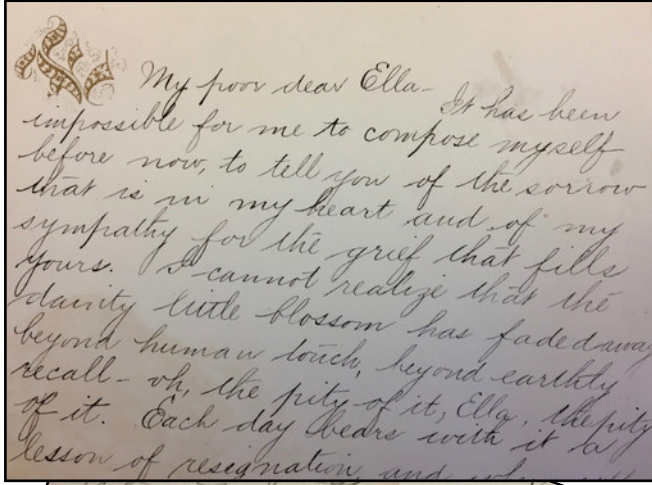 My poor dear Ella-
It has been
impossible for me to compose myself
before now, to tell you of the sorrow
that is in my heart and of my
sympathy for the grief that fills
yours. I cannot realize that the
dainty little blossom has faded away
beyond human touch, beyond earthly
recall- oh, the pity of it, Ella, the pity
of it. Each day bears with it a
lesson of resignation, and